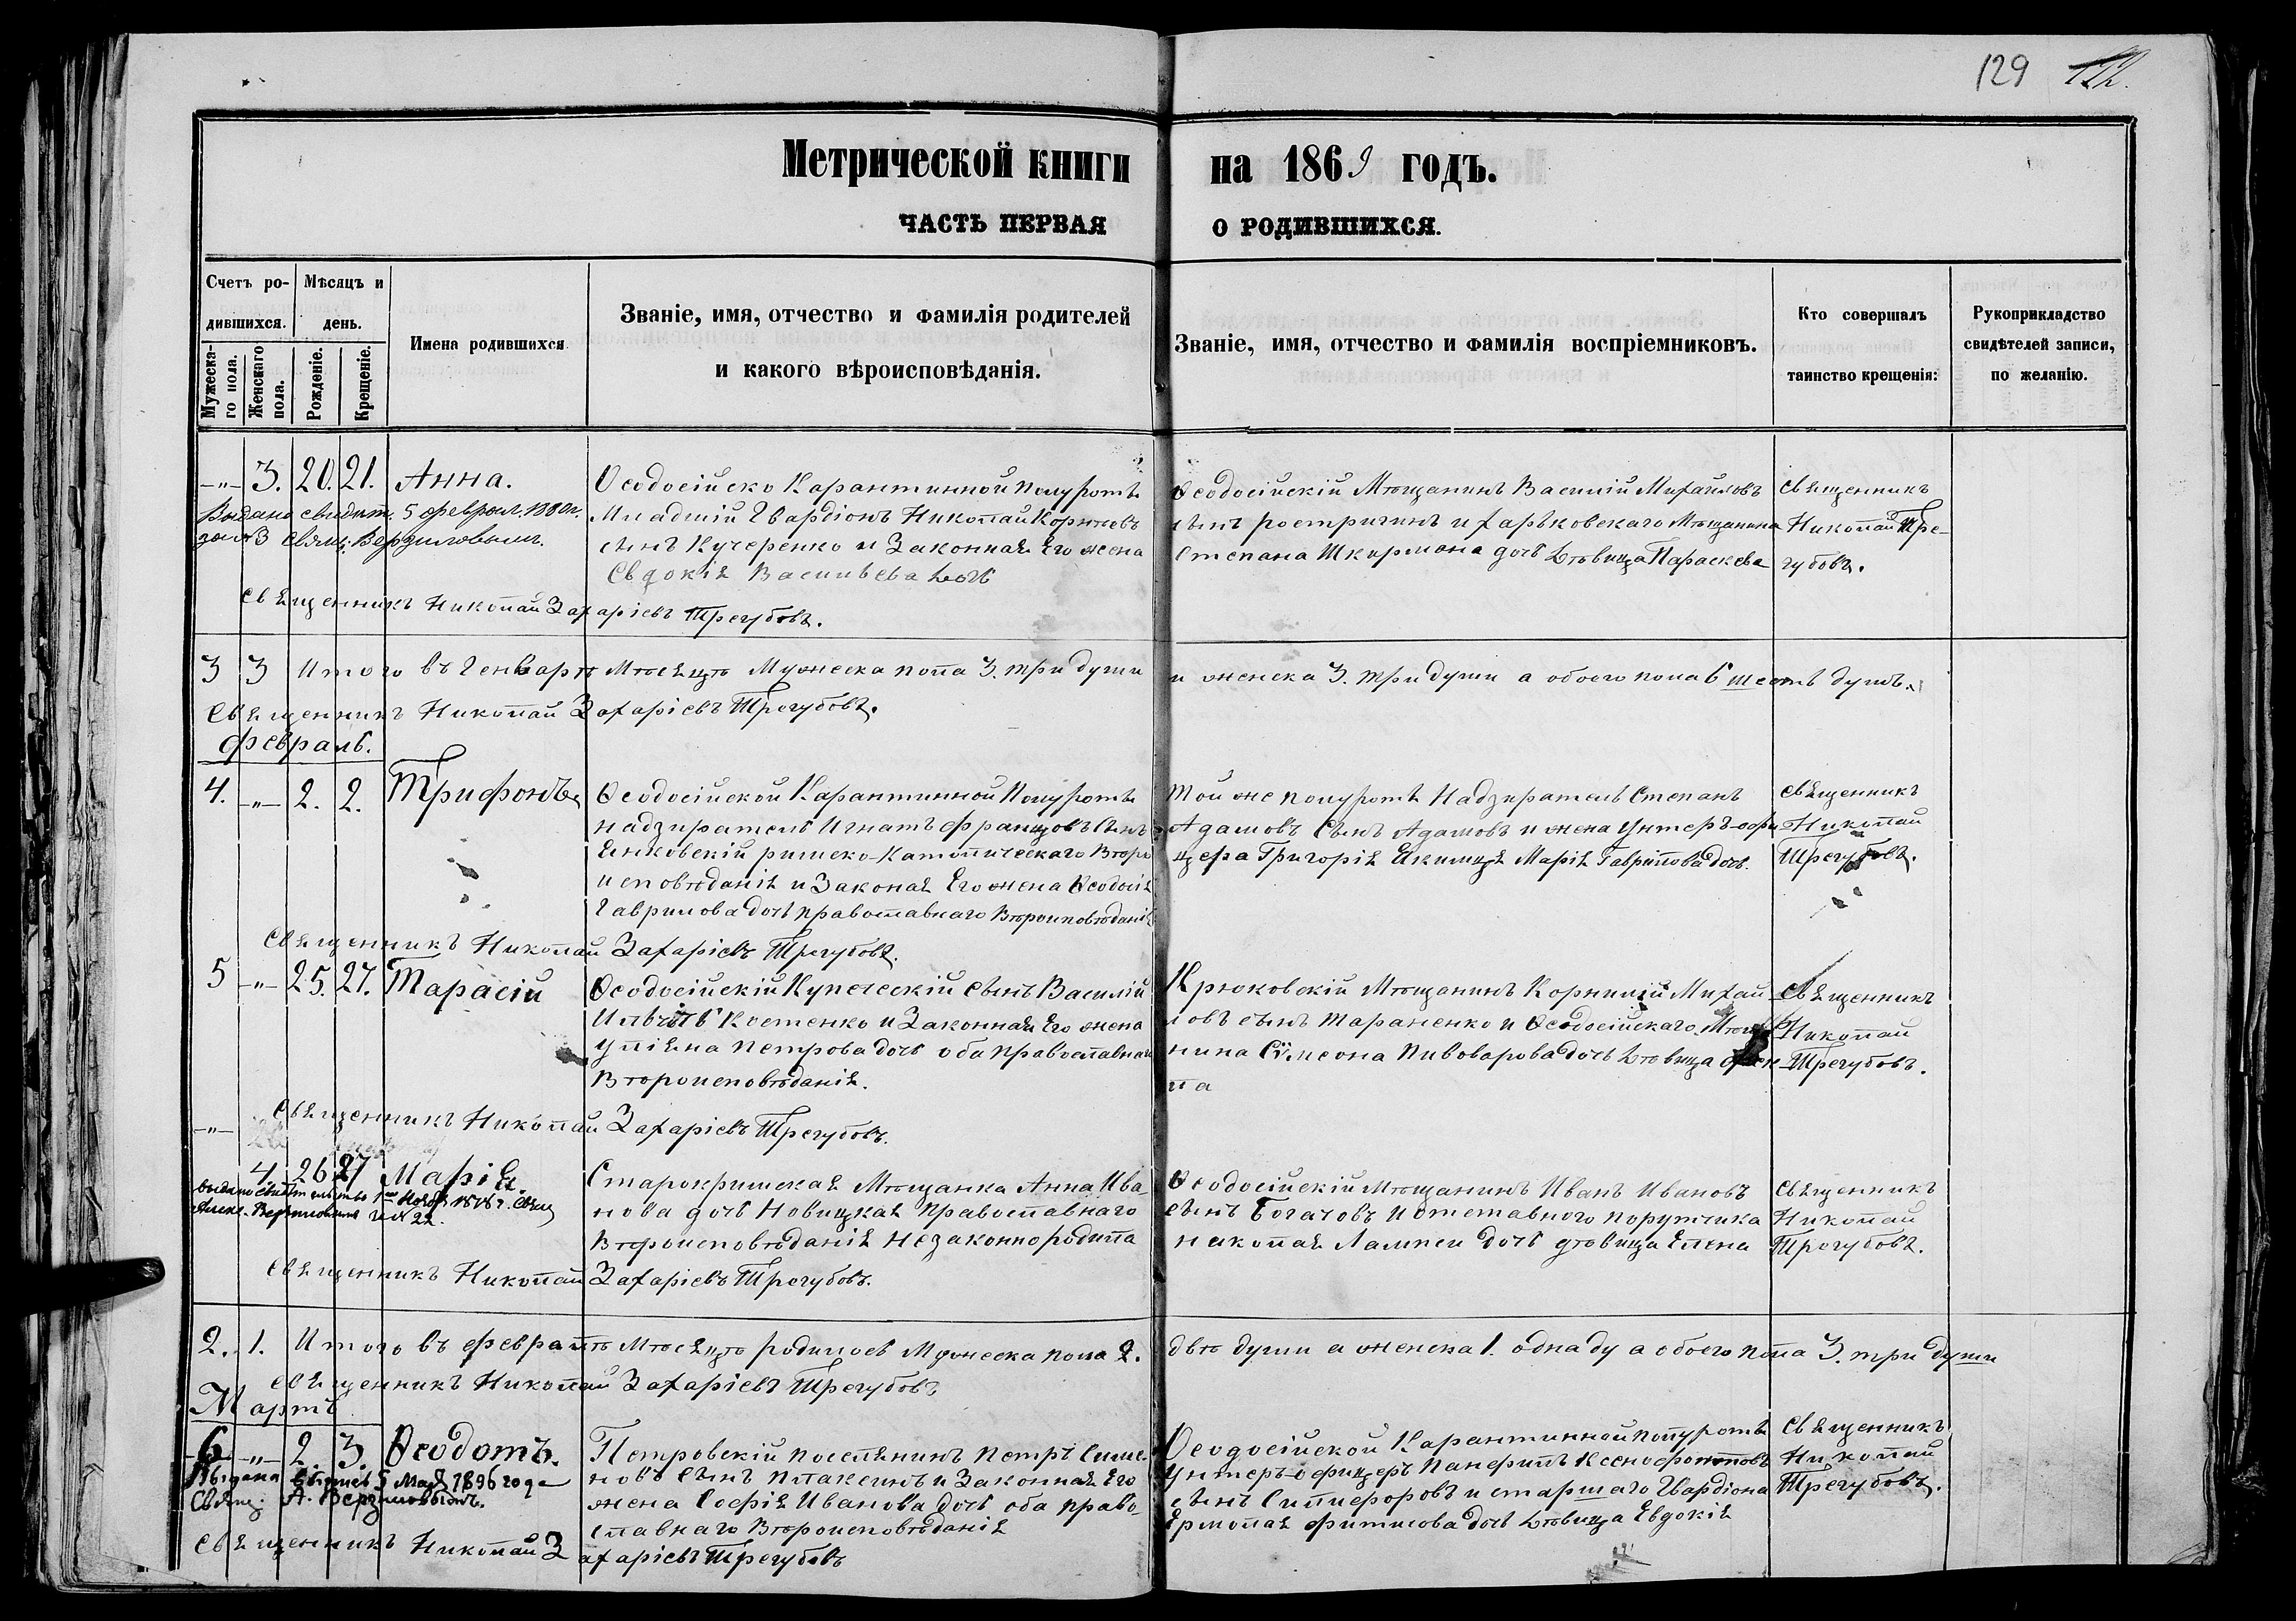 129 122.
Метрической книги на 1869 годъ.
ЧАСТЬ ПЕРВАЯ О РОДИВШИХСЯ.
Счетъ родившихся.
Мужескаго пола.
Женскаго пола.
Мѣсяцъ и день.
Рожденіе.
Крещеніе.
Имена родившихся
Званіе, имя, отчество и фамилія родителей
и какого вѣроисповѣданія.
Званіе, имя, отчество и фамилія воспріемниковъ.
Кто совершалъ
таинство крещенія:
Рукоприкладство
свидѣтелей записи,
по желанію.
-„- 3. 20. 21. Анна.
Выдано свидѣт. 5 феврал. 188
за № 3 Свящ. Верзиловымъ.
Ѳеодосійско Карантинной полуротѣ
Младшій Гвардіонъ Николай Корнѣевъ
сынъ Кучеренко и Законная Его жена
Евдокія Васильева дочь
Ѳеодосійскій Мѣщанинъ Василій Михайловъ
сынъ ростригинъ и харьковскаго Мѣщанина
Степана Шкирмана дочь Дѣвица Параскева
Священникъ
Николай Тре-
губовъ.
Священникъ Николай Захаріевъ Трегубовъ.
3 3 Итого въ Генварѣ Мѣсяцѣ Мужеска пола 3. три души и женска 3. три души а обоего пола 6 шесть душъ.
Священникъ Николай Захаріевъ Трегубовъ.
Февраль.
4. -„- 2. 2. Трифонъ
Ѳеодосійской Карантинной Полуротѣ
надзиратель Игнатъ Францовъ Сынъ
Енковскій римско-Католическаго Вѣро
исповѣданія и Законая Его жена Ѳеодосія
Гаврилова дочь православнаго Вѣроисповѣданія
Той же полуротѣ Надзиратель Степанъ
Адамовъ Сынъ Адамовъ и жена Унтеръ-офи
цера Григорія Екимця Марія Гаврілова дочь.
Священникъ
Николай
Трегубовъ.
Священникъ Николай Захаріевъ Трегубовъ.
5 -„- 25. 27. Тарасій
Ѳеодосійскій Купеческій сынъ Василій
Ильичъ Костенко и Законная Его жена
Уліяна Петрова дочь оба православнаго
Вѣроисповѣданія.
Крюковскій Мѣщанинъ Корнилій Михай
ловъ сынъ Тараненко и Ѳеодосійскаго Мѣща
нина Сѵмеона Пивоварова дочь Дѣвица
ла
Священникъ
Николай
Трегубовъ.
Священникъ Николай Захаріевъ Трегубовъ.
-„- 4. 26 27 Марія.
выдано свидѣтельство Нояб. 1878 г. Свящ
Алекс. Верзиловымъ № 22.
Старокримская Мѣщанка Анна Ива-
нова дочь Новицкая Православнаго
Вѣроисповѣданія незаконнородила
Ѳеодосійскій Мѣщанинъ Иванъ Ивановъ
сынъ Богачовъ и отставного поручика
николая Лампси дочь дѣвица Елена
Священникъ
Николай
Трегубовъ.
Священникъ Николай Захаріевъ Трегубовъ.
2. 1. Итого въ февралѣ Мѣсяцѣ родилось Мужеска пола 2. двѣ души а женска 1. одна ду а обоего пола 3. три души
Священникъ Николай Захаріевъ Трегубовъ
Мартъ
6 -„- 2. 3. Ѳеодотъ.
Выдана 5 Мая 1896 года
Свящ. А. Верзиловымъ.
Петровскій поселянинъ Петръ Симе-
новъ Сынъ Плаксинъ и Законная Его
жена Софія Иванова дочь оба право-
славнаго Вѣроисповѣданія
Ѳеодосійской Карантинной полуротѣ
Унтеръ-офицеръ Панфилъ Ксенофонтовъ
сынъ Силиферовъ и старшаго Гвардіона
Ермолая Филимова дочь Дѣвица Евдокія
Священникъ
Николай
Трегубовъ.
Священникъ Николай Захаріевъ Трегубовъ